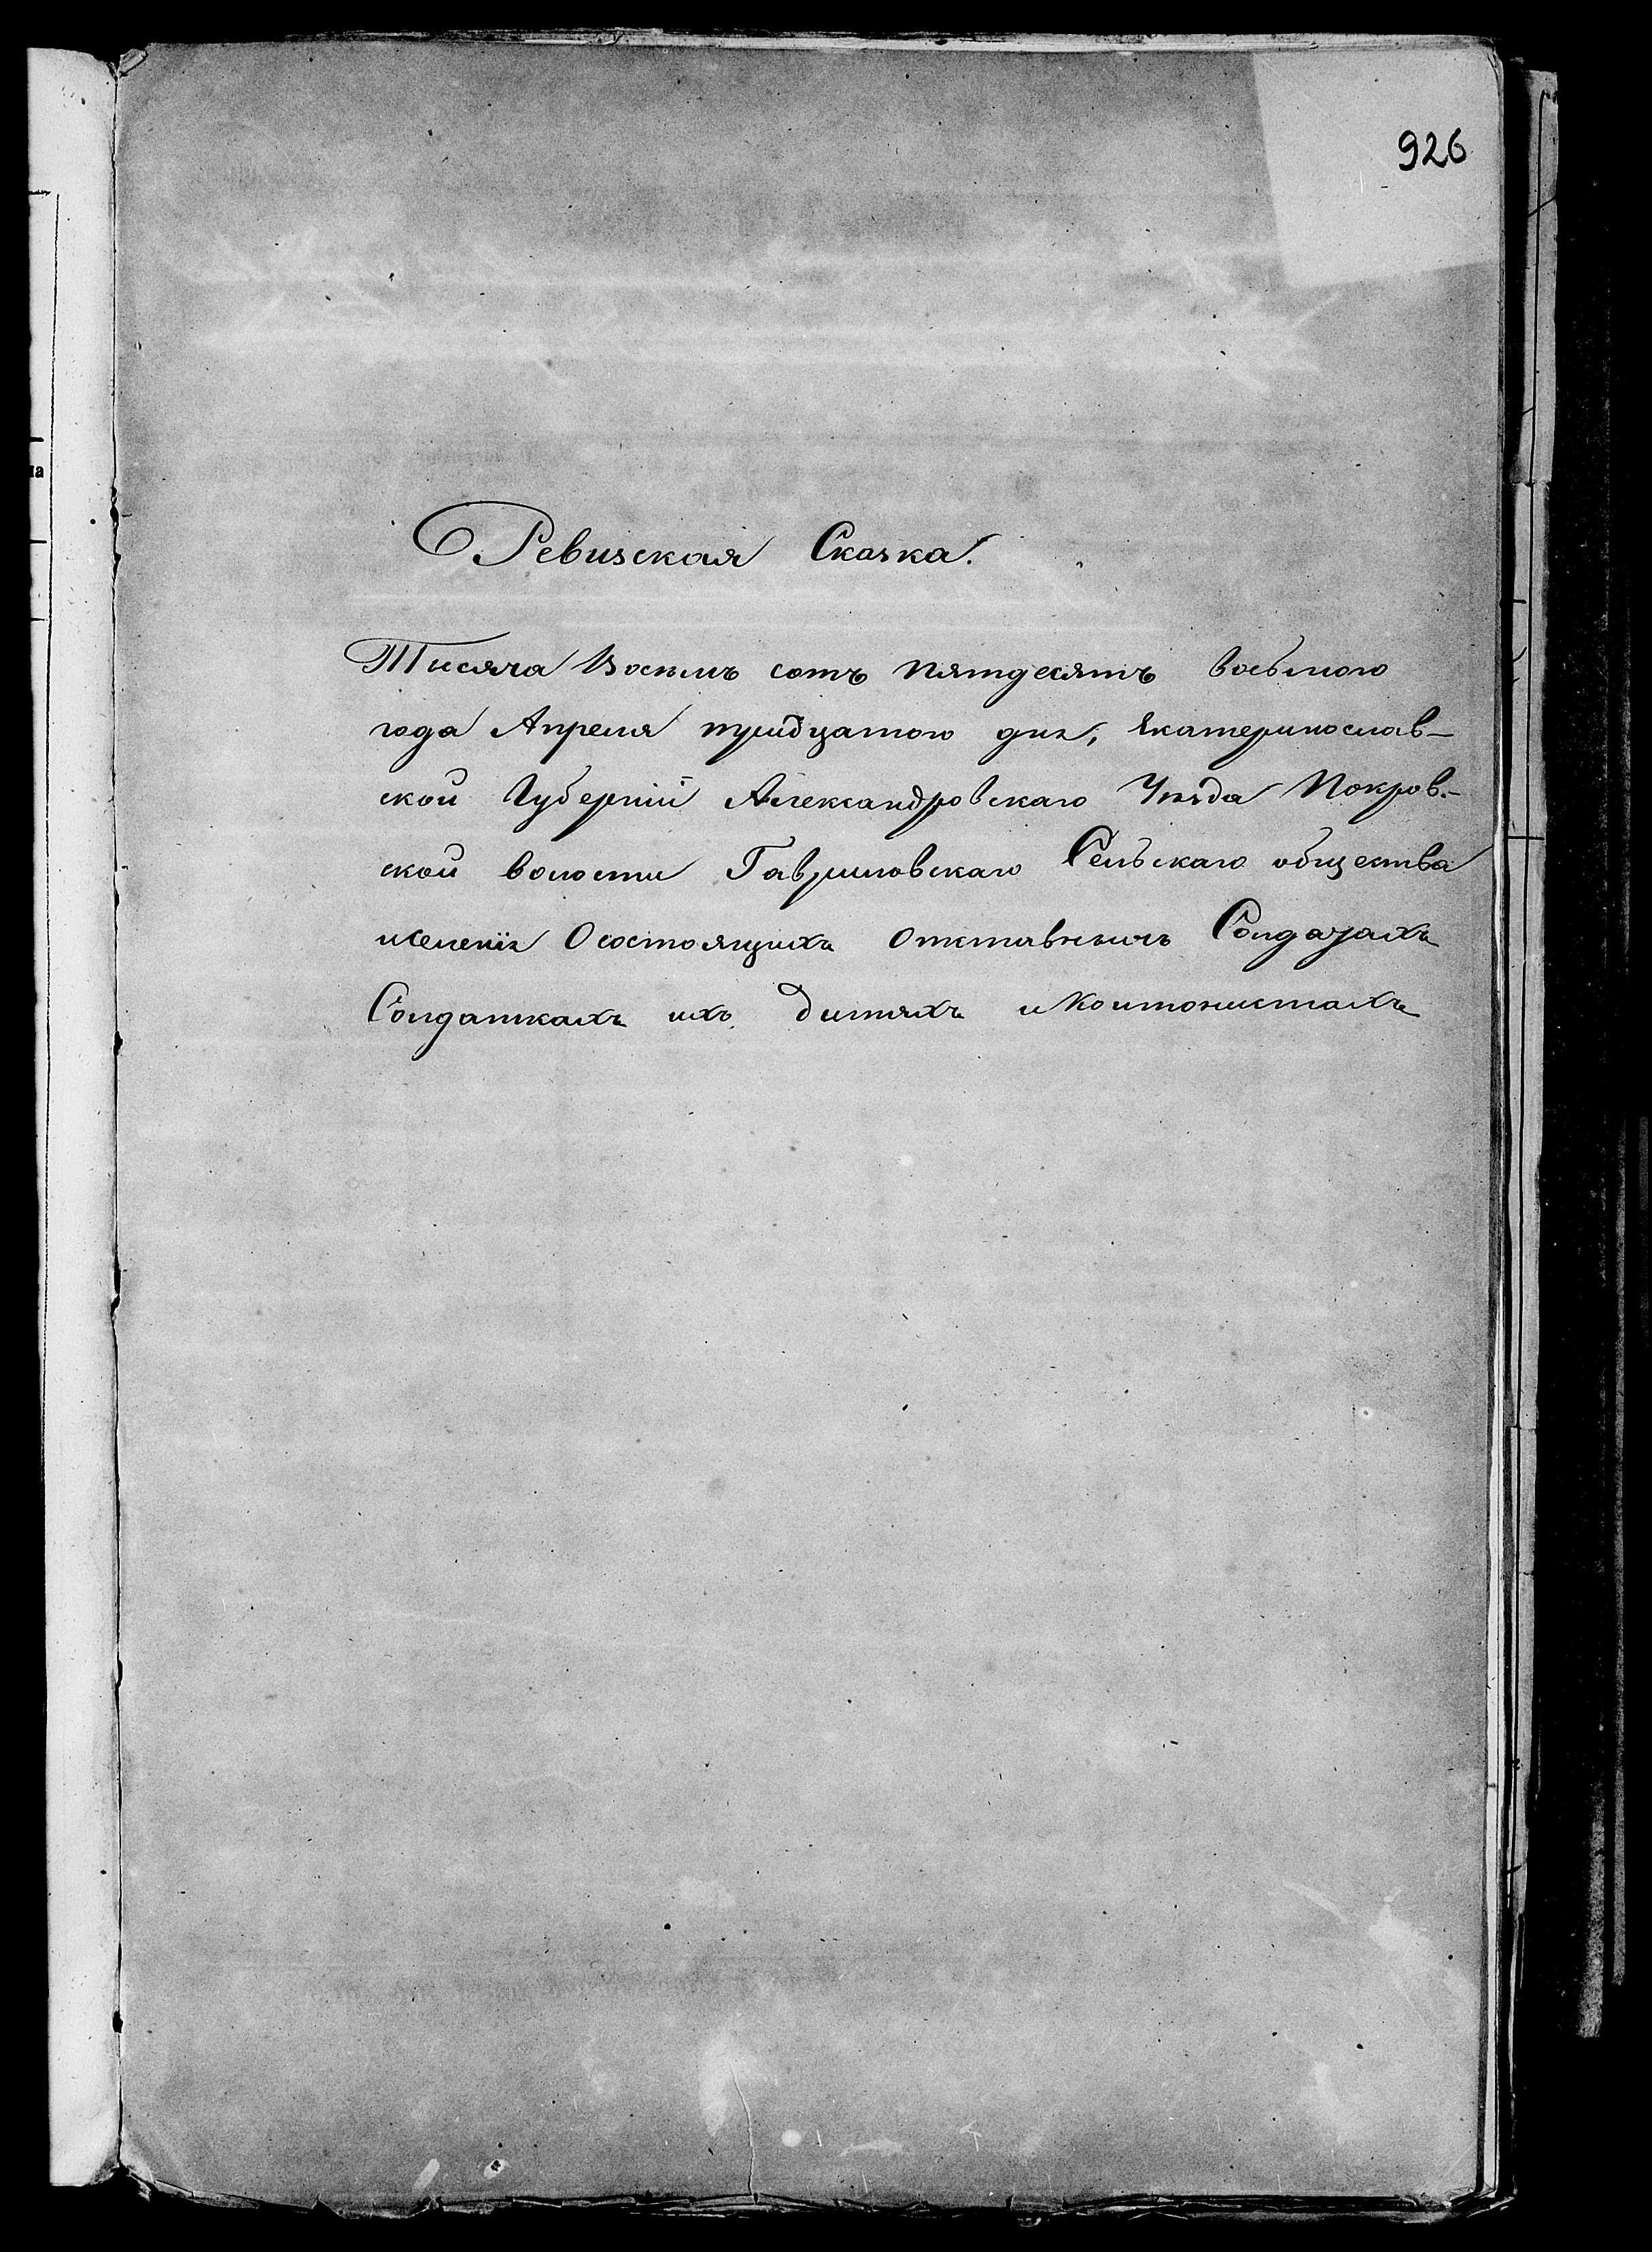 926
на
Ревизская Сказка.
Тисяча Восемь сотъ пятдесятъ восьмого
года Апреля тридцатого дня, Екатеринослав-
ской Губерніи Александровскаго Уѣзда Покров-
ской волости Гавриловскаго Сельскаго общества
иселенія Осостоящихъ Отставныхъ Солдатахъ
Солдаткахъ ихъ Дитяхъ иКонтонистахъ